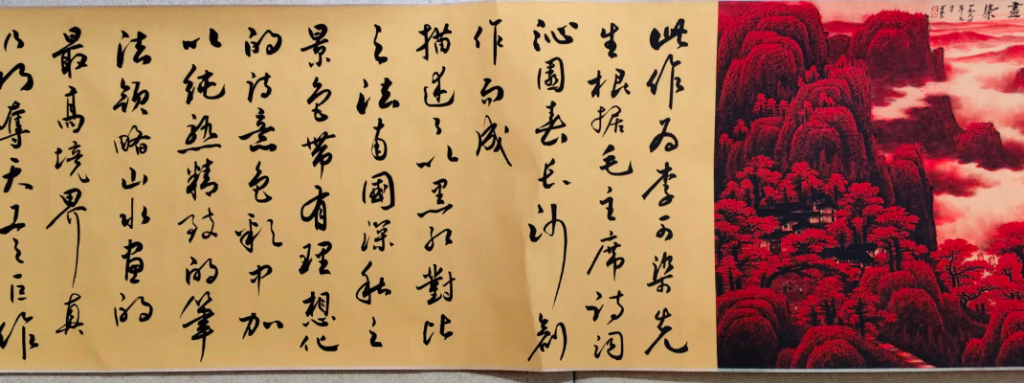 畫
染
此作为李可染先
生根据毛主席诗词
沁園春長沙創
作而成
描述了以黑红對比
之法南國深秋之
景色帶有理想化
的诗意色彩中加
以純熟精致的筆
法领略山水画的
最高境界真
乃巧奪天工之巨作